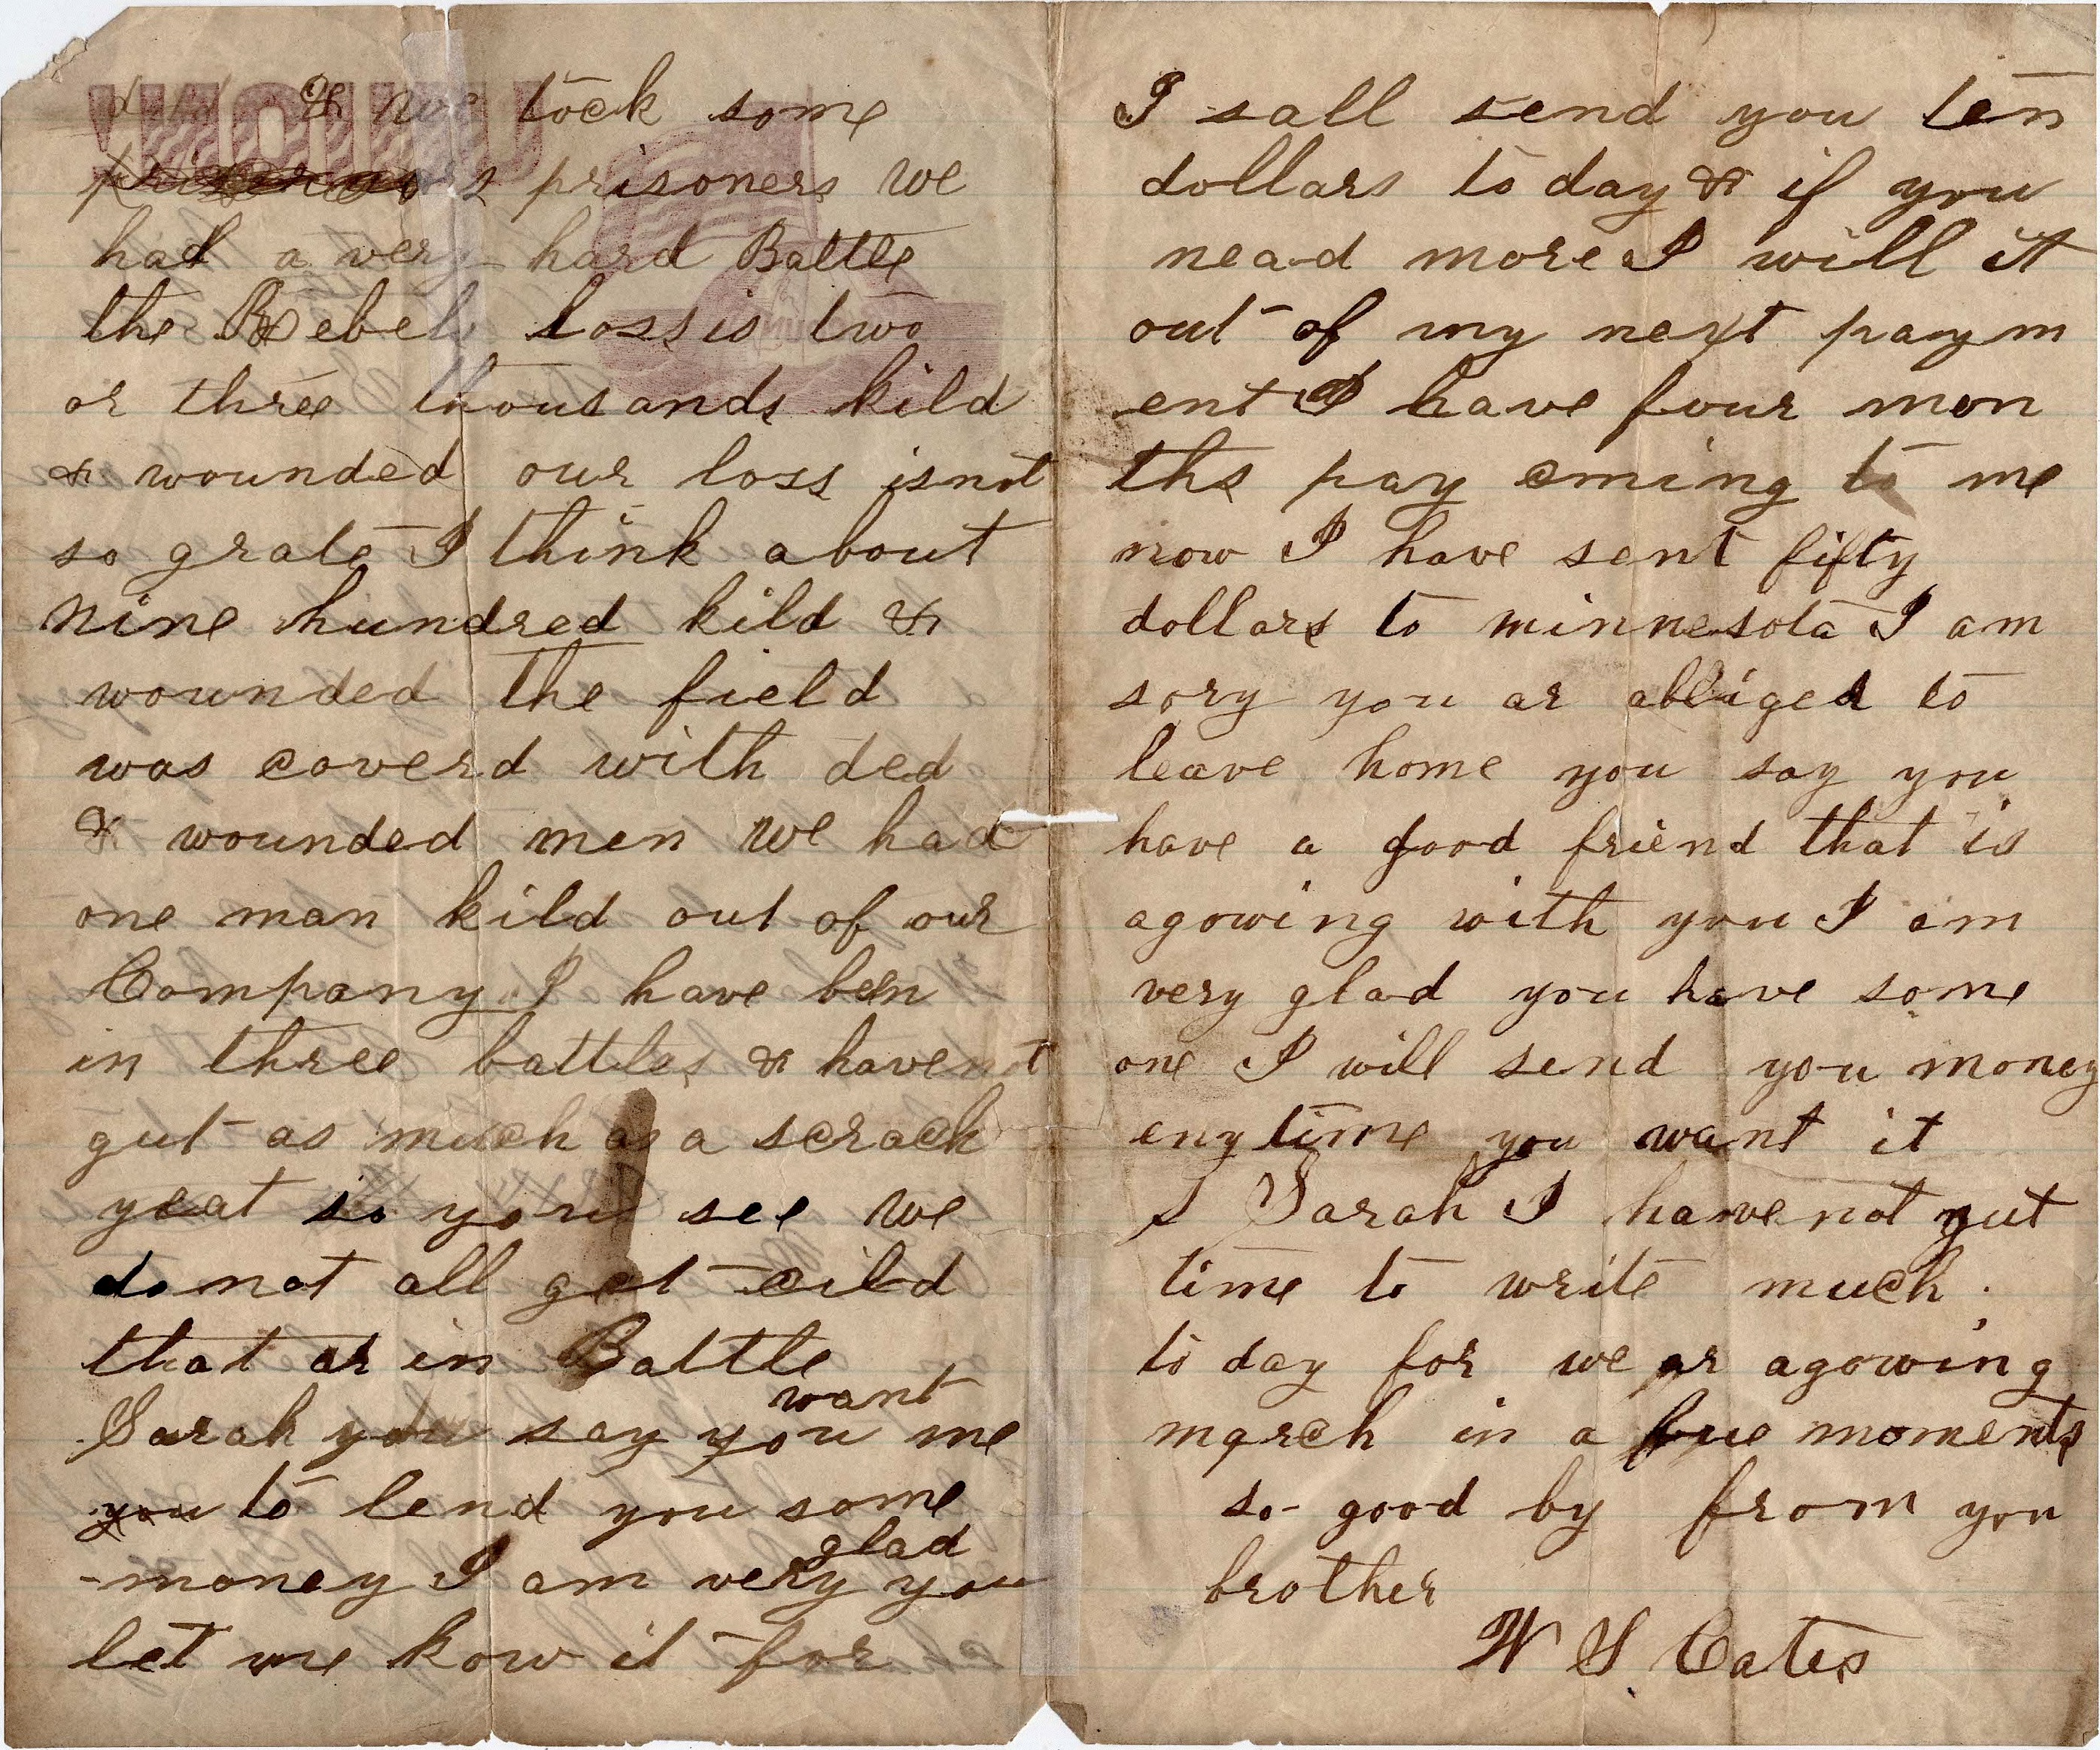 & we tock some
prisoners we
had a very hard Battle
the Rebels loss is two
or three thousands kild
& wounded our loss is not
so grate I think about
Nine hundred kild &
wounded the field
was coverd with ded
& wounded men we had
one man kild out of our
Company I have been
in three battles & have not
gut as much as a scrach
yeat so you see we
do not all get cild
that ar in Battle
want
Sarah you say you me
you to lend you some
glad
money I am very you
let me kow it for
I sall send you ten
dollars to day & if you
nead more I will it
out of my next paym
ent I have four mon
ths pay cming to me
now I have sent fifty
dollars to minnesota I am
sory you ar abliged to
leave home you say you
have a good friend that is
agowing with you I am
very glad you have some
one I will send you money
eny time you want it
Sarah I have not gut
time to write much.
to day for we ar agowing
march in a fue moments
so good by from you
brother
W S. Cates